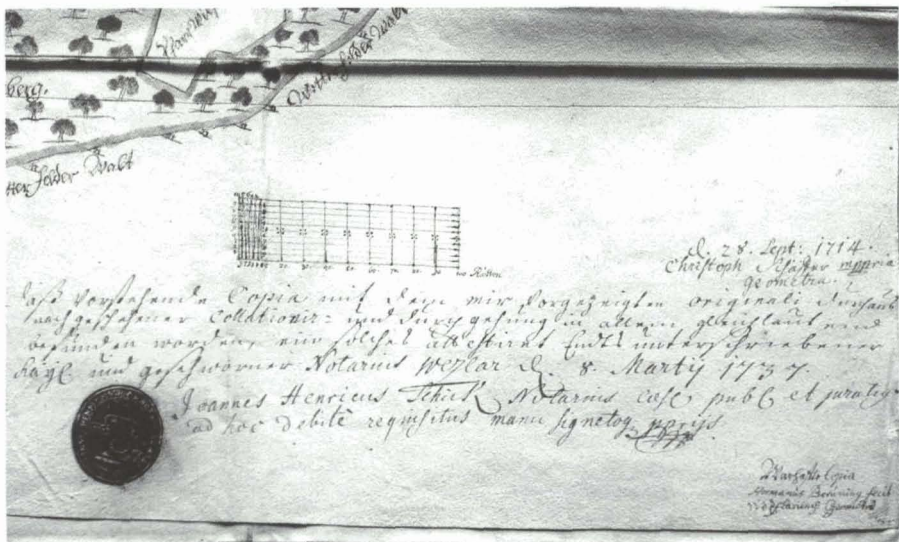 berg.
Walt
Felder Walt
Ruten
d. 28. Sept: 1714.
Christoph Schäffer mppria
Geometra.
daß vorstehende Copia mit dem mir vorgezeigten originali durchaus
nach geschehener Collationir- und durchgehung in allem gleichlautend
befunden worden, ein solches attestirt Endts unterschriebener
Kayl und geschworner Notarius Wezlar d. 8 Martij 1737
Joannes Henricus Schick Notarius cæs publ et juratus
ad hoc debite requisitus manu signetoq pprijs
Copia
Hermanus fecit